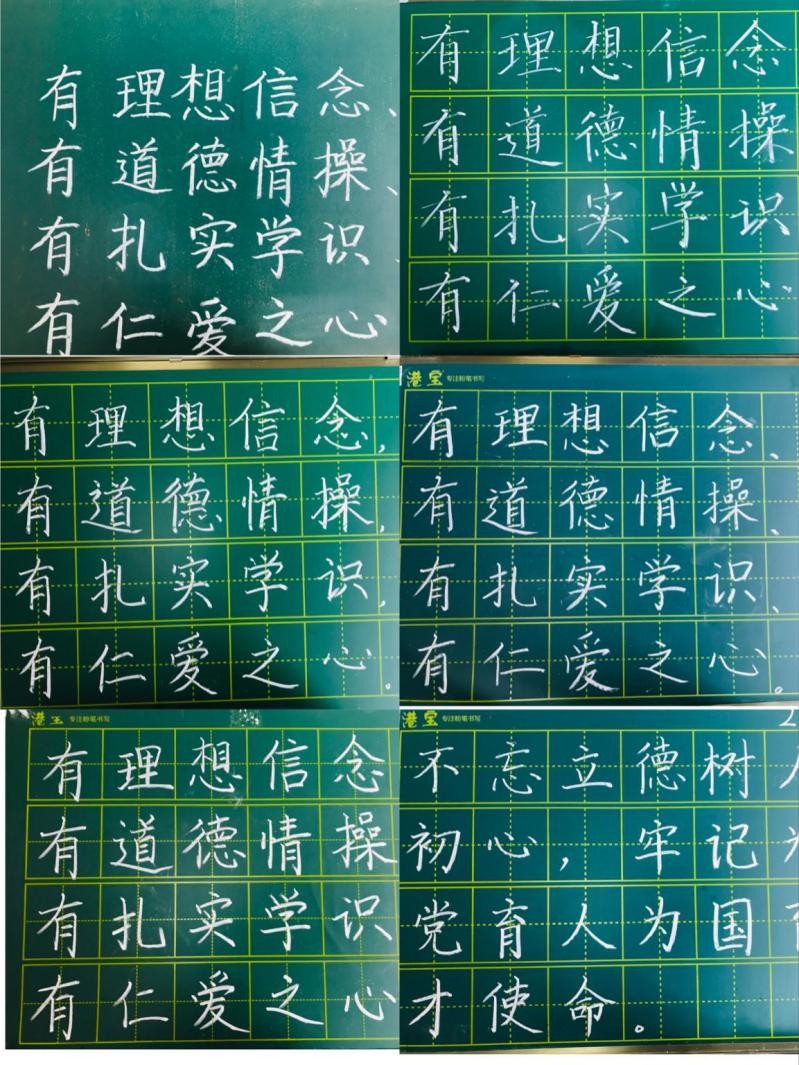 有理想信念、
有道德情操、
有扎实学识
有仁爱之心
有理想信念
有道德情操
有扎实学识
有仁爱之心
有理想信念，
有道德情操，
有扎实学识，
有仁爱之心。
港宝 专注粉笔书写
有理想信念、
有道德情操、
有扎实学识、
有仁爱之心。
港宝 专注粉笔书写
有理想信念
有道德情操
有扎实学识
有仁爱之心
港宝 专注粉笔书写
不忘立德树
初心，牢记
党育人为国
才使命。